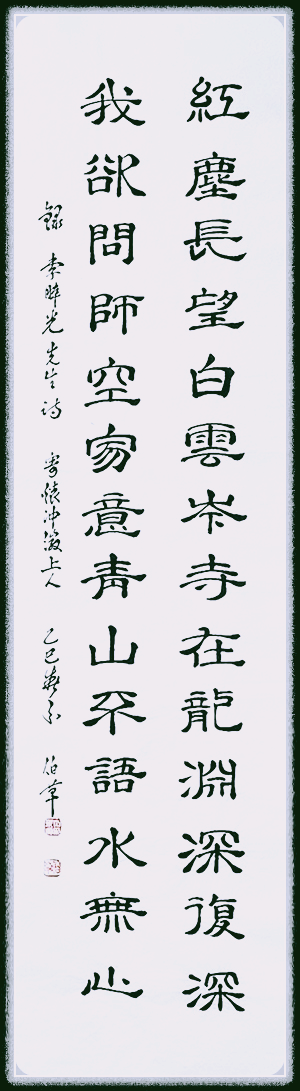 紅塵長望白雲岑寺在龍淵深復深
我欲問師空家意青山不語水無心
錄 索 光先生詩 寄懷沖澂上人 乙巳 伯章